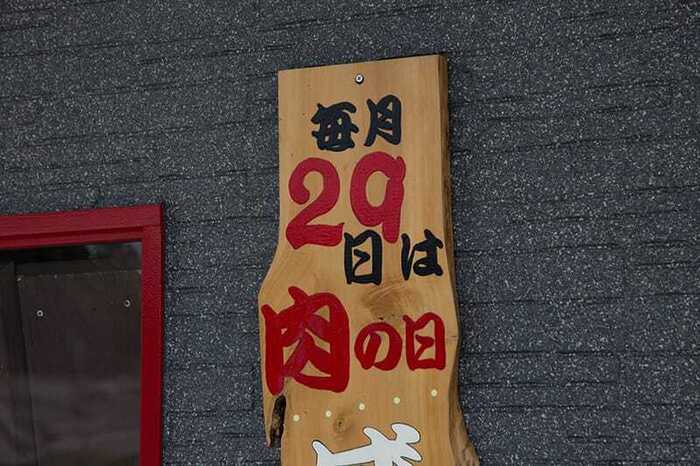 毎月
29
日は
肉の日